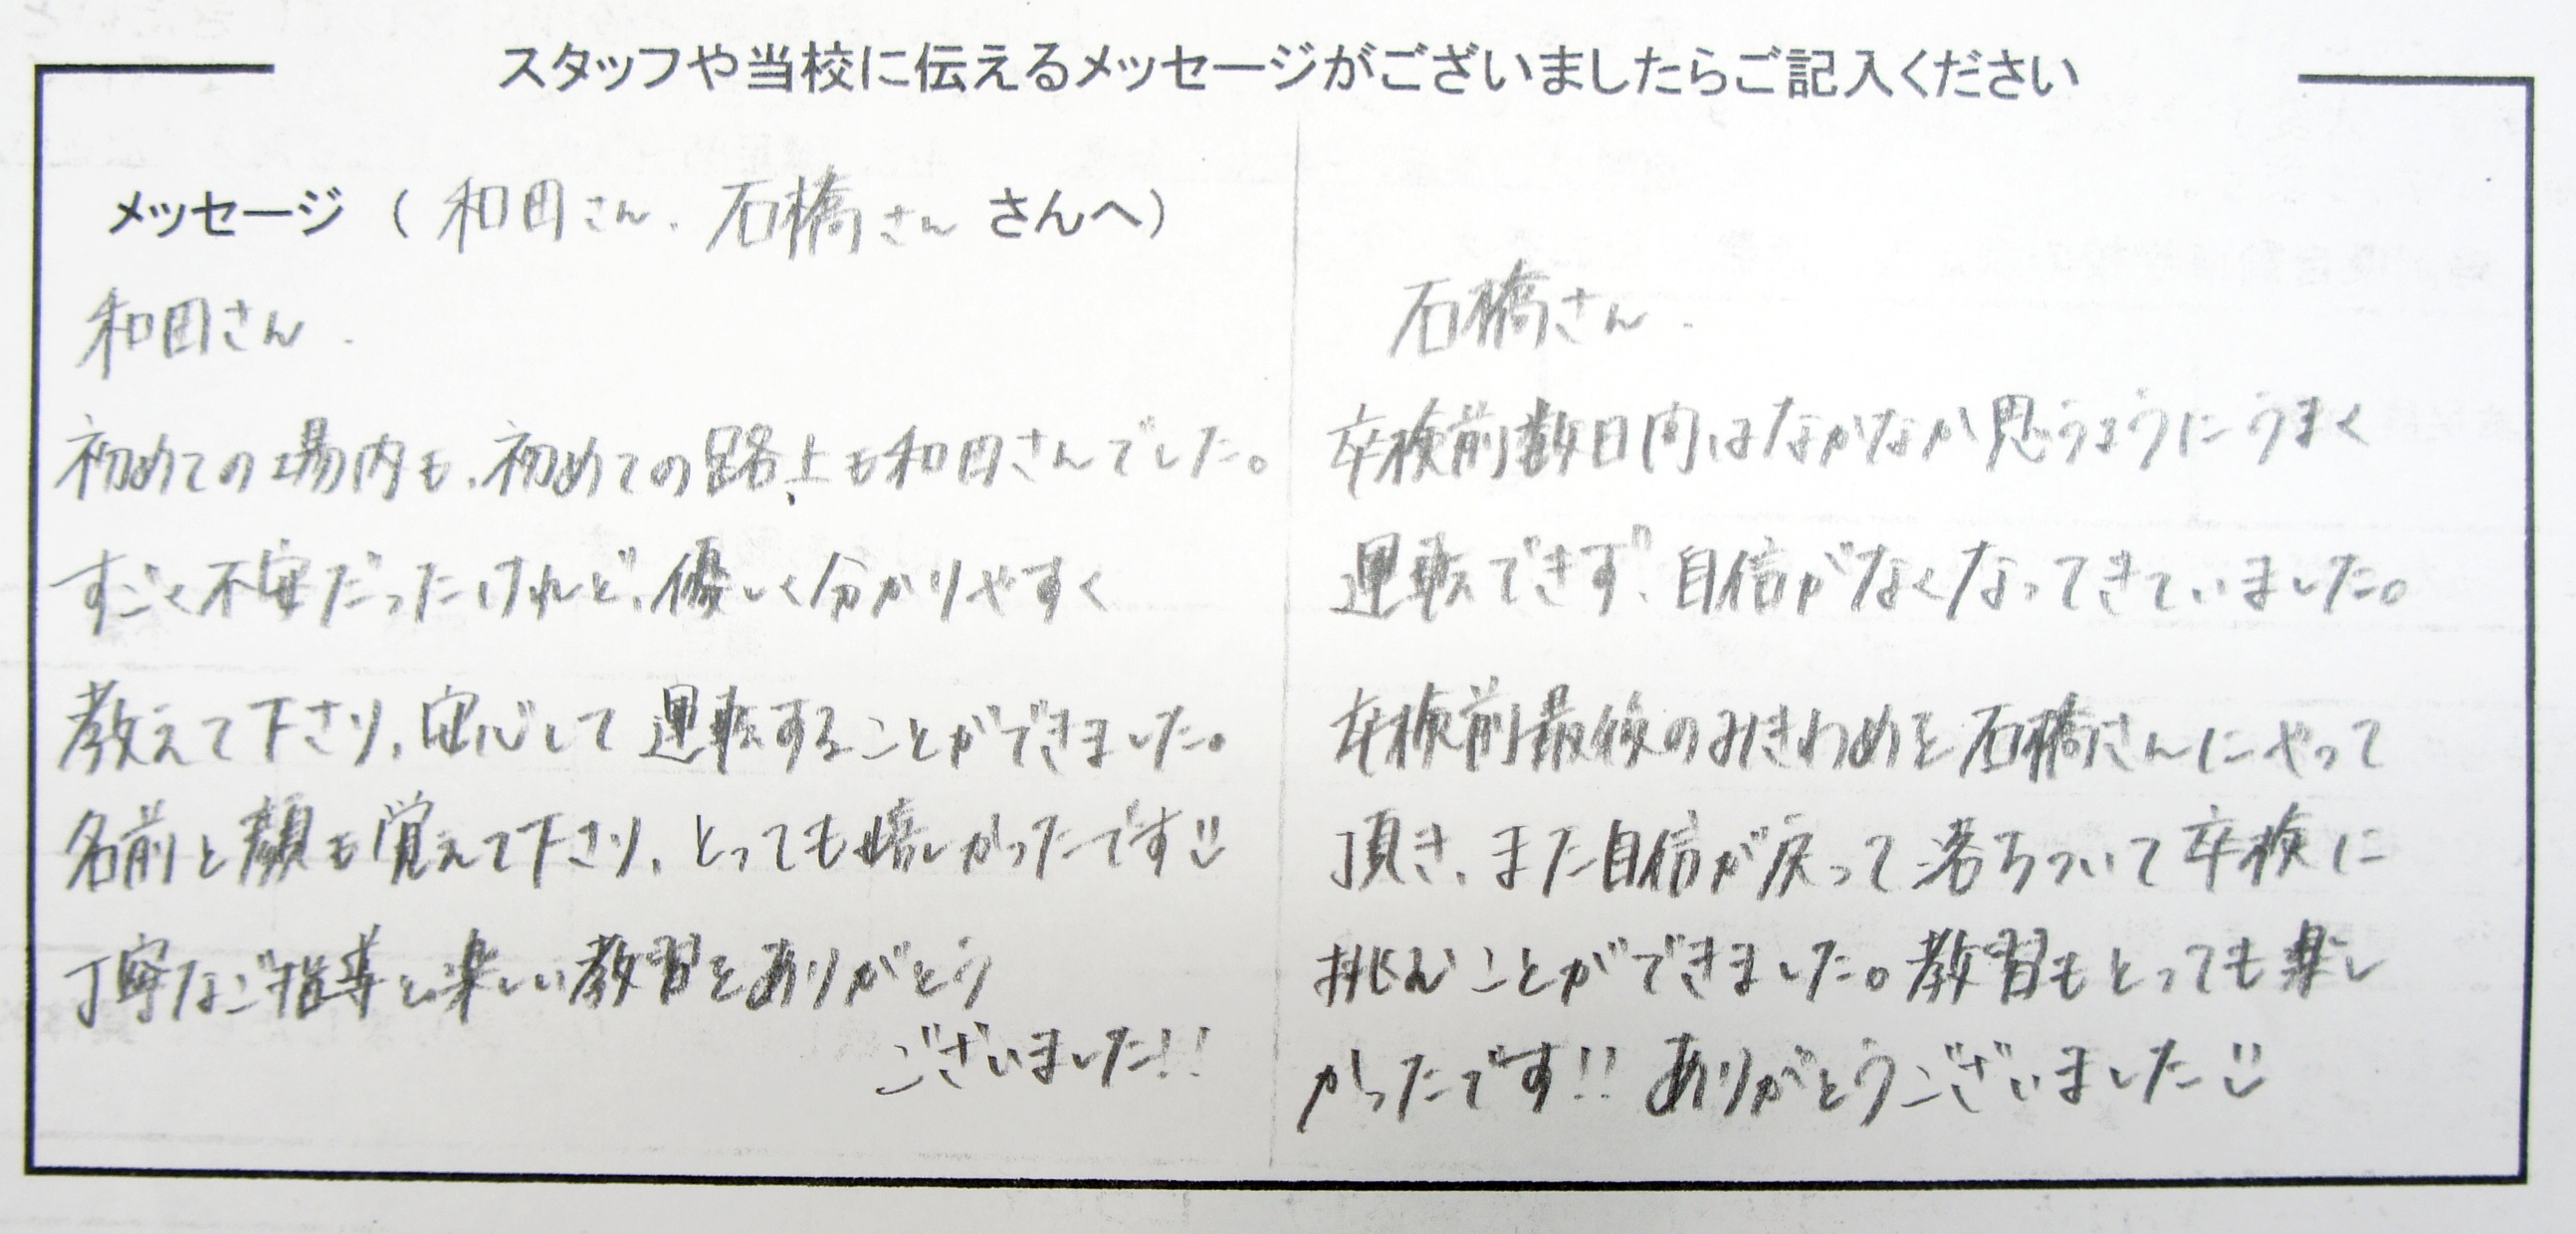 スタッフや当校に伝えるメッセージがございましたらご記入ください
メッセージ（和田さん、石橋さん さんへ）
和田さん、
初めての場内も、初めての路上も和田さんでした。
すごく不安だったけれど、優しく分かりやすく
教えて下さり、安心して運転することができました。
名前と顔も覚えて下さり、とっても嬉しかったです
丁寧なご指導と楽しい教習をありがとう
ございました!!
石橋さん、
卒検前数日間はなかなか思うようにうまく
運転できず、自信がなくなってきていました。
卒検前最後のみきわめを石橋さんにやって
頂き、また自信が戻って落ちついて卒検に
挑むことができました。教習もとっても楽し
かったです!! ありがとうございました